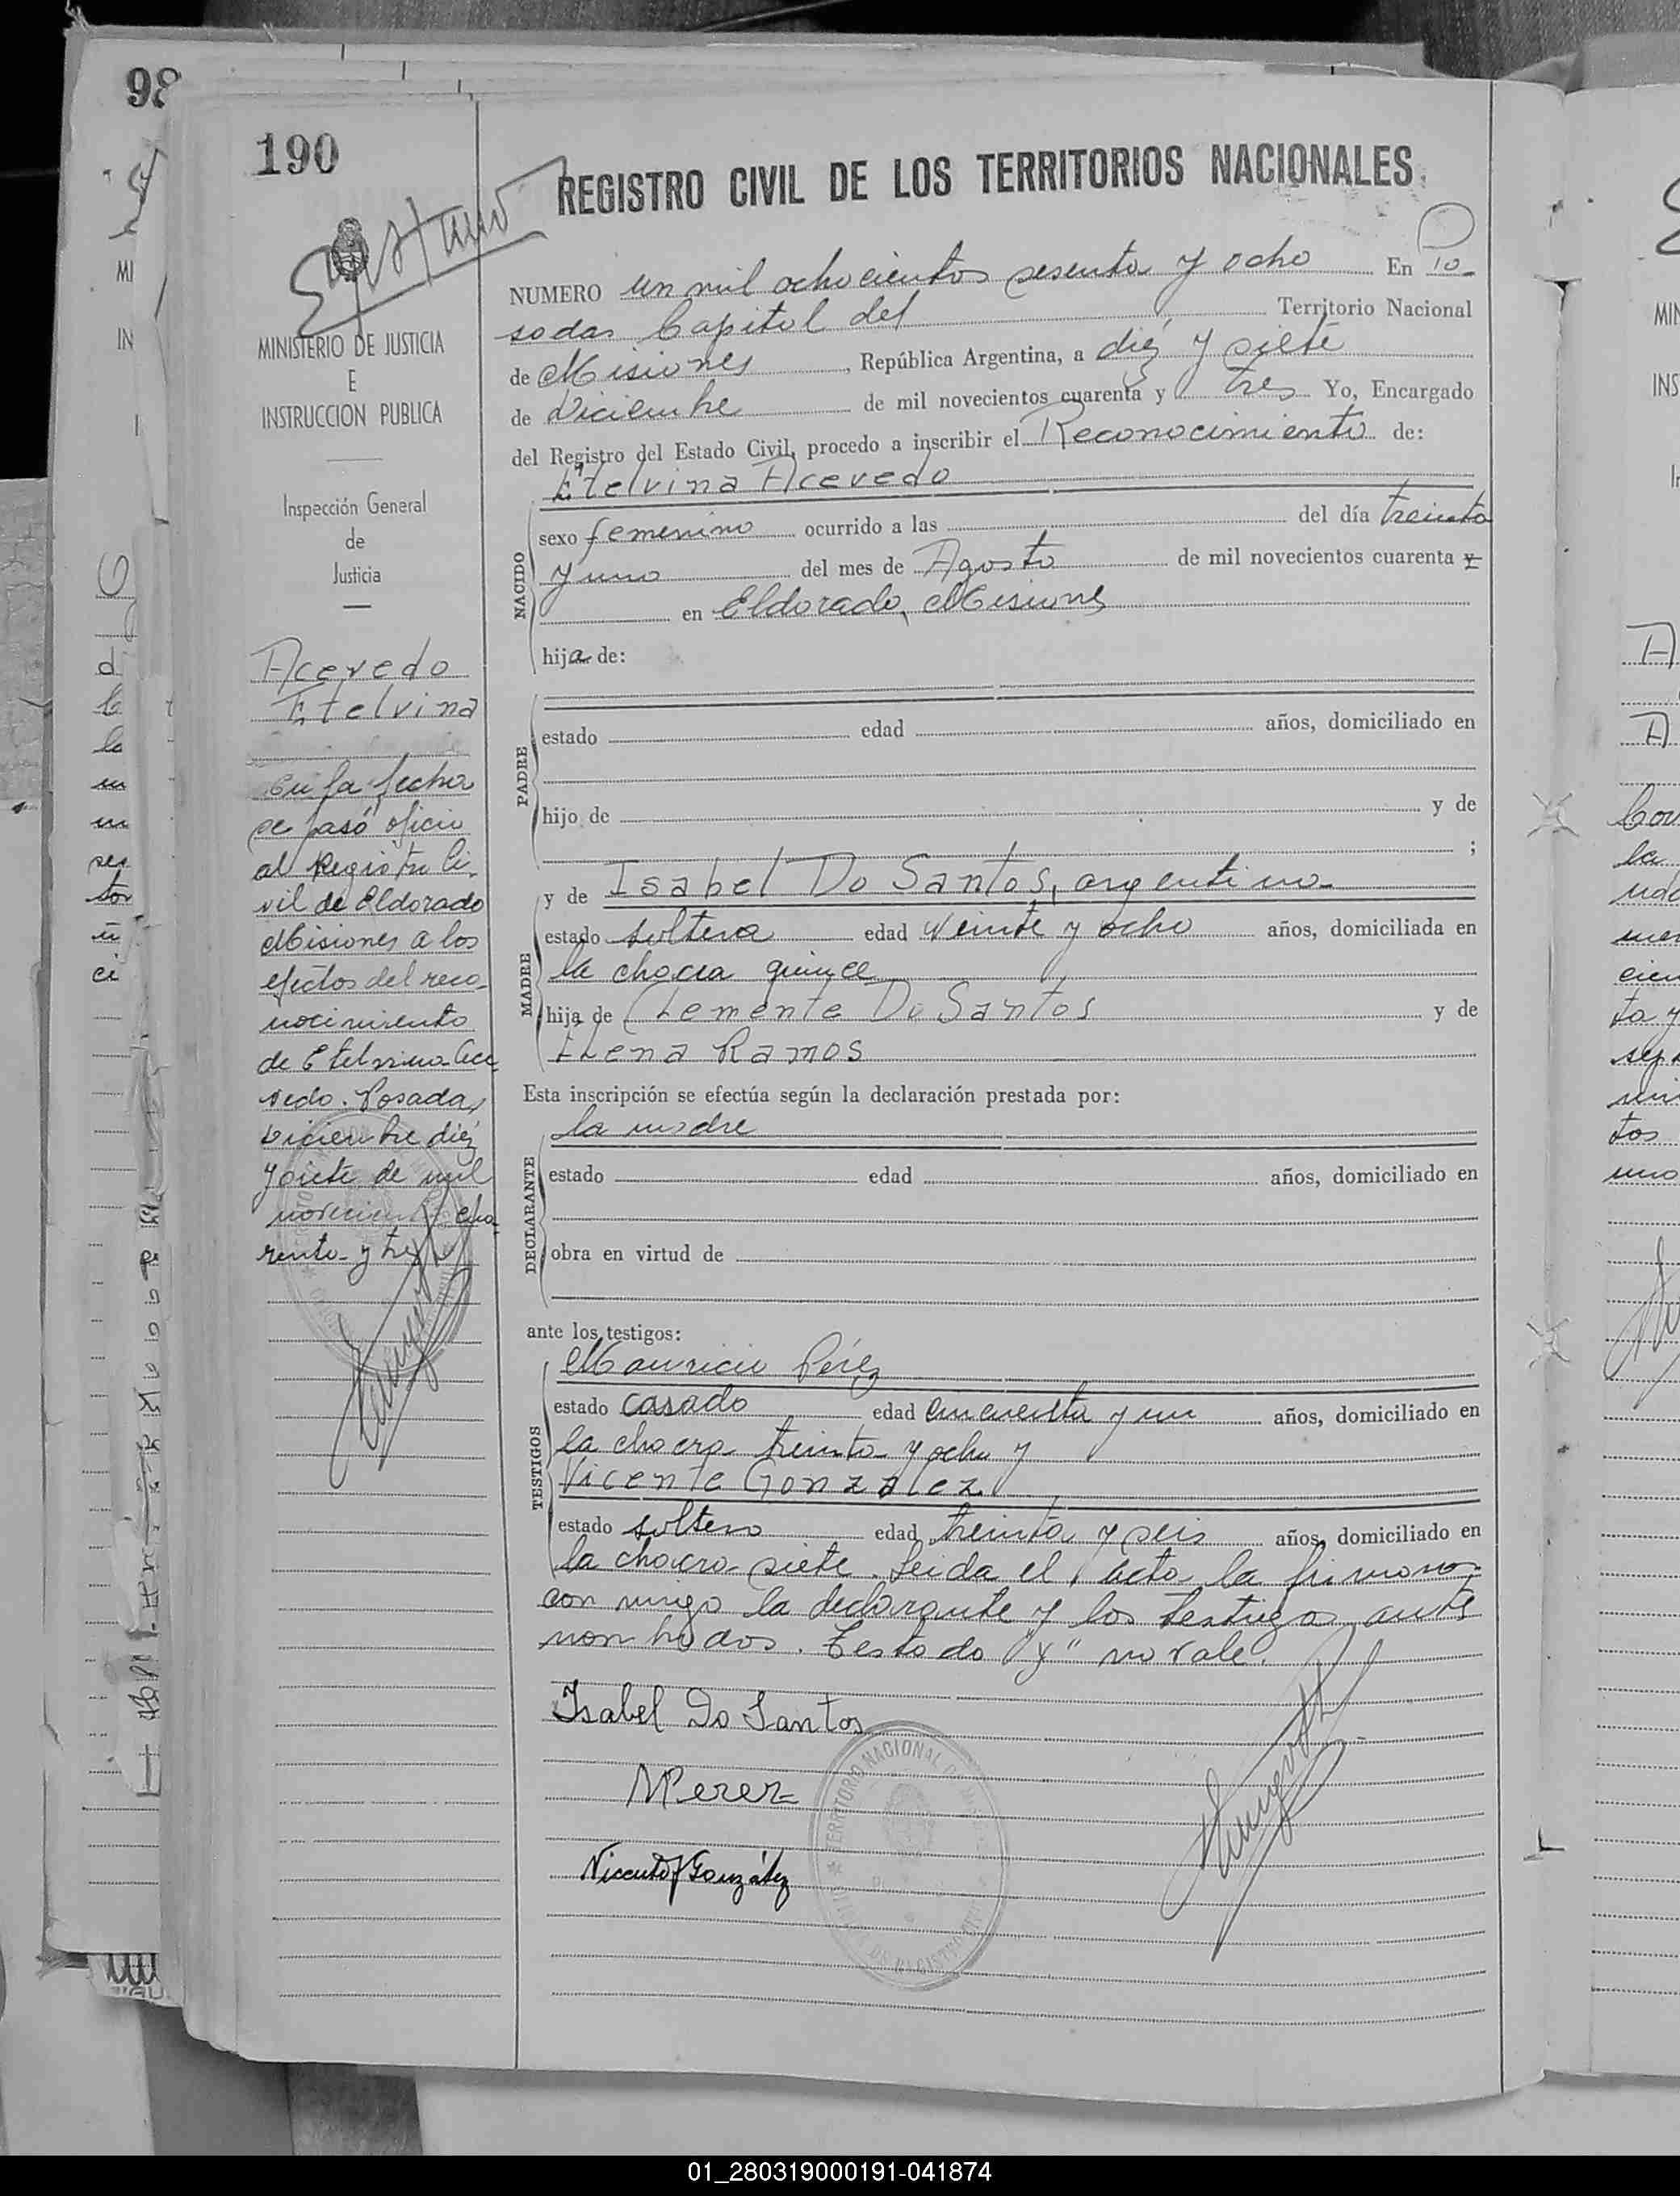 98
190
REGISTRO CIVIL DE LOS TERRITORIOS NACIONALES
MINISTERIO DE JUSTICIA
E
INSTRUCCION PUBLICA
Inspección General
de
Justicia
Acevedo
Etelvina
En la fecha
se pasó oficio
al Registro Ci-
vil de Eldorado
Misiones a los
efectos del reco-
nocimiento
de Etelvina Ace
vedo. Posadas,
Diciembre diez
y siete de mil
novecientos cua-
renta y tres
NUMERO un mil ochocientos sesenta y ocho En Po-
sadas Capital del Territorio Nacional
de Misiones, República Argentina, a diez y siete
de Diciembre de mil novecientos cuarenta y tres Yo, Encargado
del Registro del Estado Civil, procedo a inscribir el Reconocimiento de:
Etelvina Acevedo
NACIDO
sexo femenino ocurrido a las del día treinta
y uno del mes de Agosto de mil novecientos cuarenta y
en Eldorado, Misiones
hija de:
PADRE
estado edad años, domiciliado en
hijo de y de
;
MADRE
y de Isabel Do Santos, argentina-
estado soltera edad veinte y ocho años, domiciliada en
la chacra quince
hija de Clemente Do Santos y de
Elena Ramos
Esta inscripción se efectúa según la declaración prestada por:
DECLARANTE
la madre
estado edad años, domiciliado en
obra en virtud de
ante los testigos:
TESTIGOS
Mauricio Pérez
estado casado edad cincuenta y un años, domiciliado en
la chacra treinta y ocho y
Vicente Gonzalez
estado soltero edad treinta y seis años, domiciliado en
la chacra siete. Leida el acta la firmaron
con migo la declarante y los testigos ante
nombrados. Testado "y" no vale.
Isabel Do Santos
MPerez
Vicente González
TERRITORIO NACIONAL DE MISIONES
01_280319000191-041874